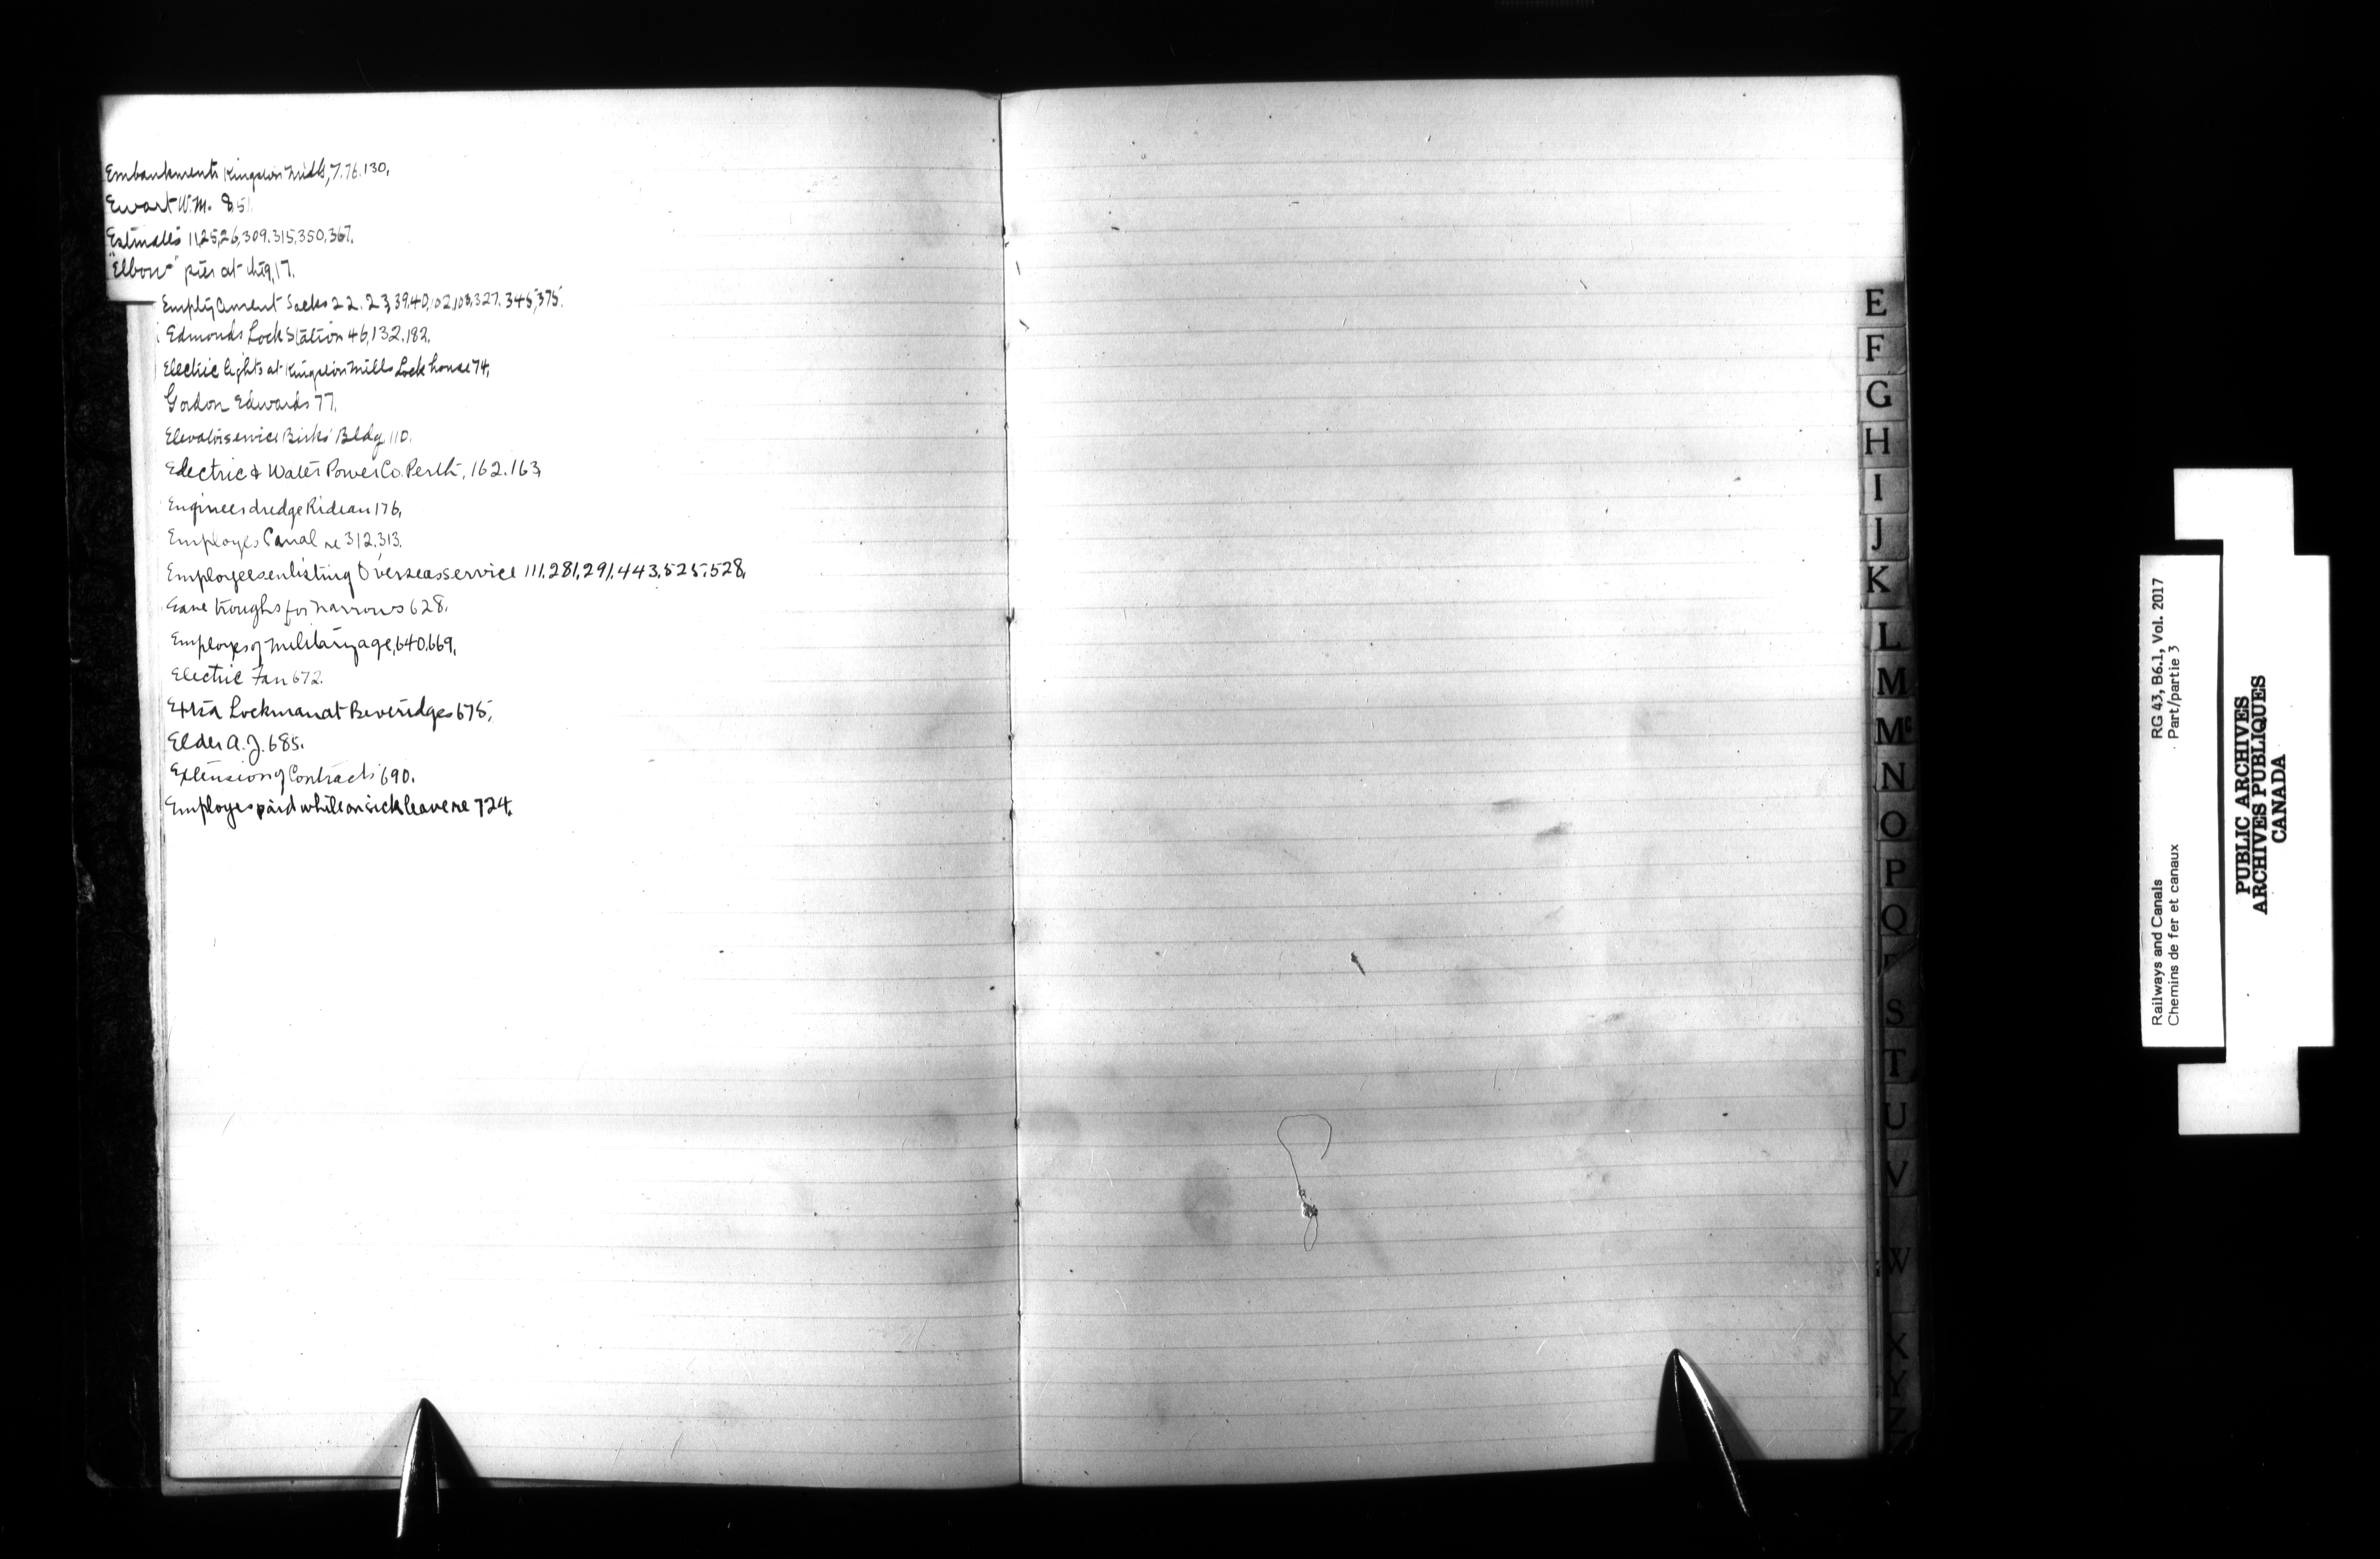 Embankments Kingston Mills, 7.76.130.
Ewart W.M. 8,51.
Estimates 11,25,26,309.315,350,367.
"Elbow" pier at 17.
Empty Cement Sacks 22.23,39,40,102,103,327.345,375.
Edmonds Lock Station 46,132.182.
Electric lights at Kingston Mills Lock house 74,
Gordon Edwards 77.
Elevator service Birks' Bldg 110.
Edectric & Water Power Co. Perth, 162.163,
Engineers dredge Rideau 176,
Employes Canal re 312.313.
Employees enlisting Overseas service 111.281,291.443,525,528,
Eave troughs for Narrows 628.
Employes of military age, 640.669.
Electric Fan 672.
Extra Lockman at Beveridges 675,
Elder A.J. 685.
Extension of Contracts 690.
Employes paid while on sick leave re 724.
E
F
G
H
I
J
K
L
M
Mc
N
O
P
Q
S
T
U
V
W
X
Y
Z
Railways and Canals RG 43, B6.1, Vol. 2017
Chemins de fer et canaux Part/partie 3
PUBLIC ARCHIVES
ARCHIVES PUBLIQUES
CANADA